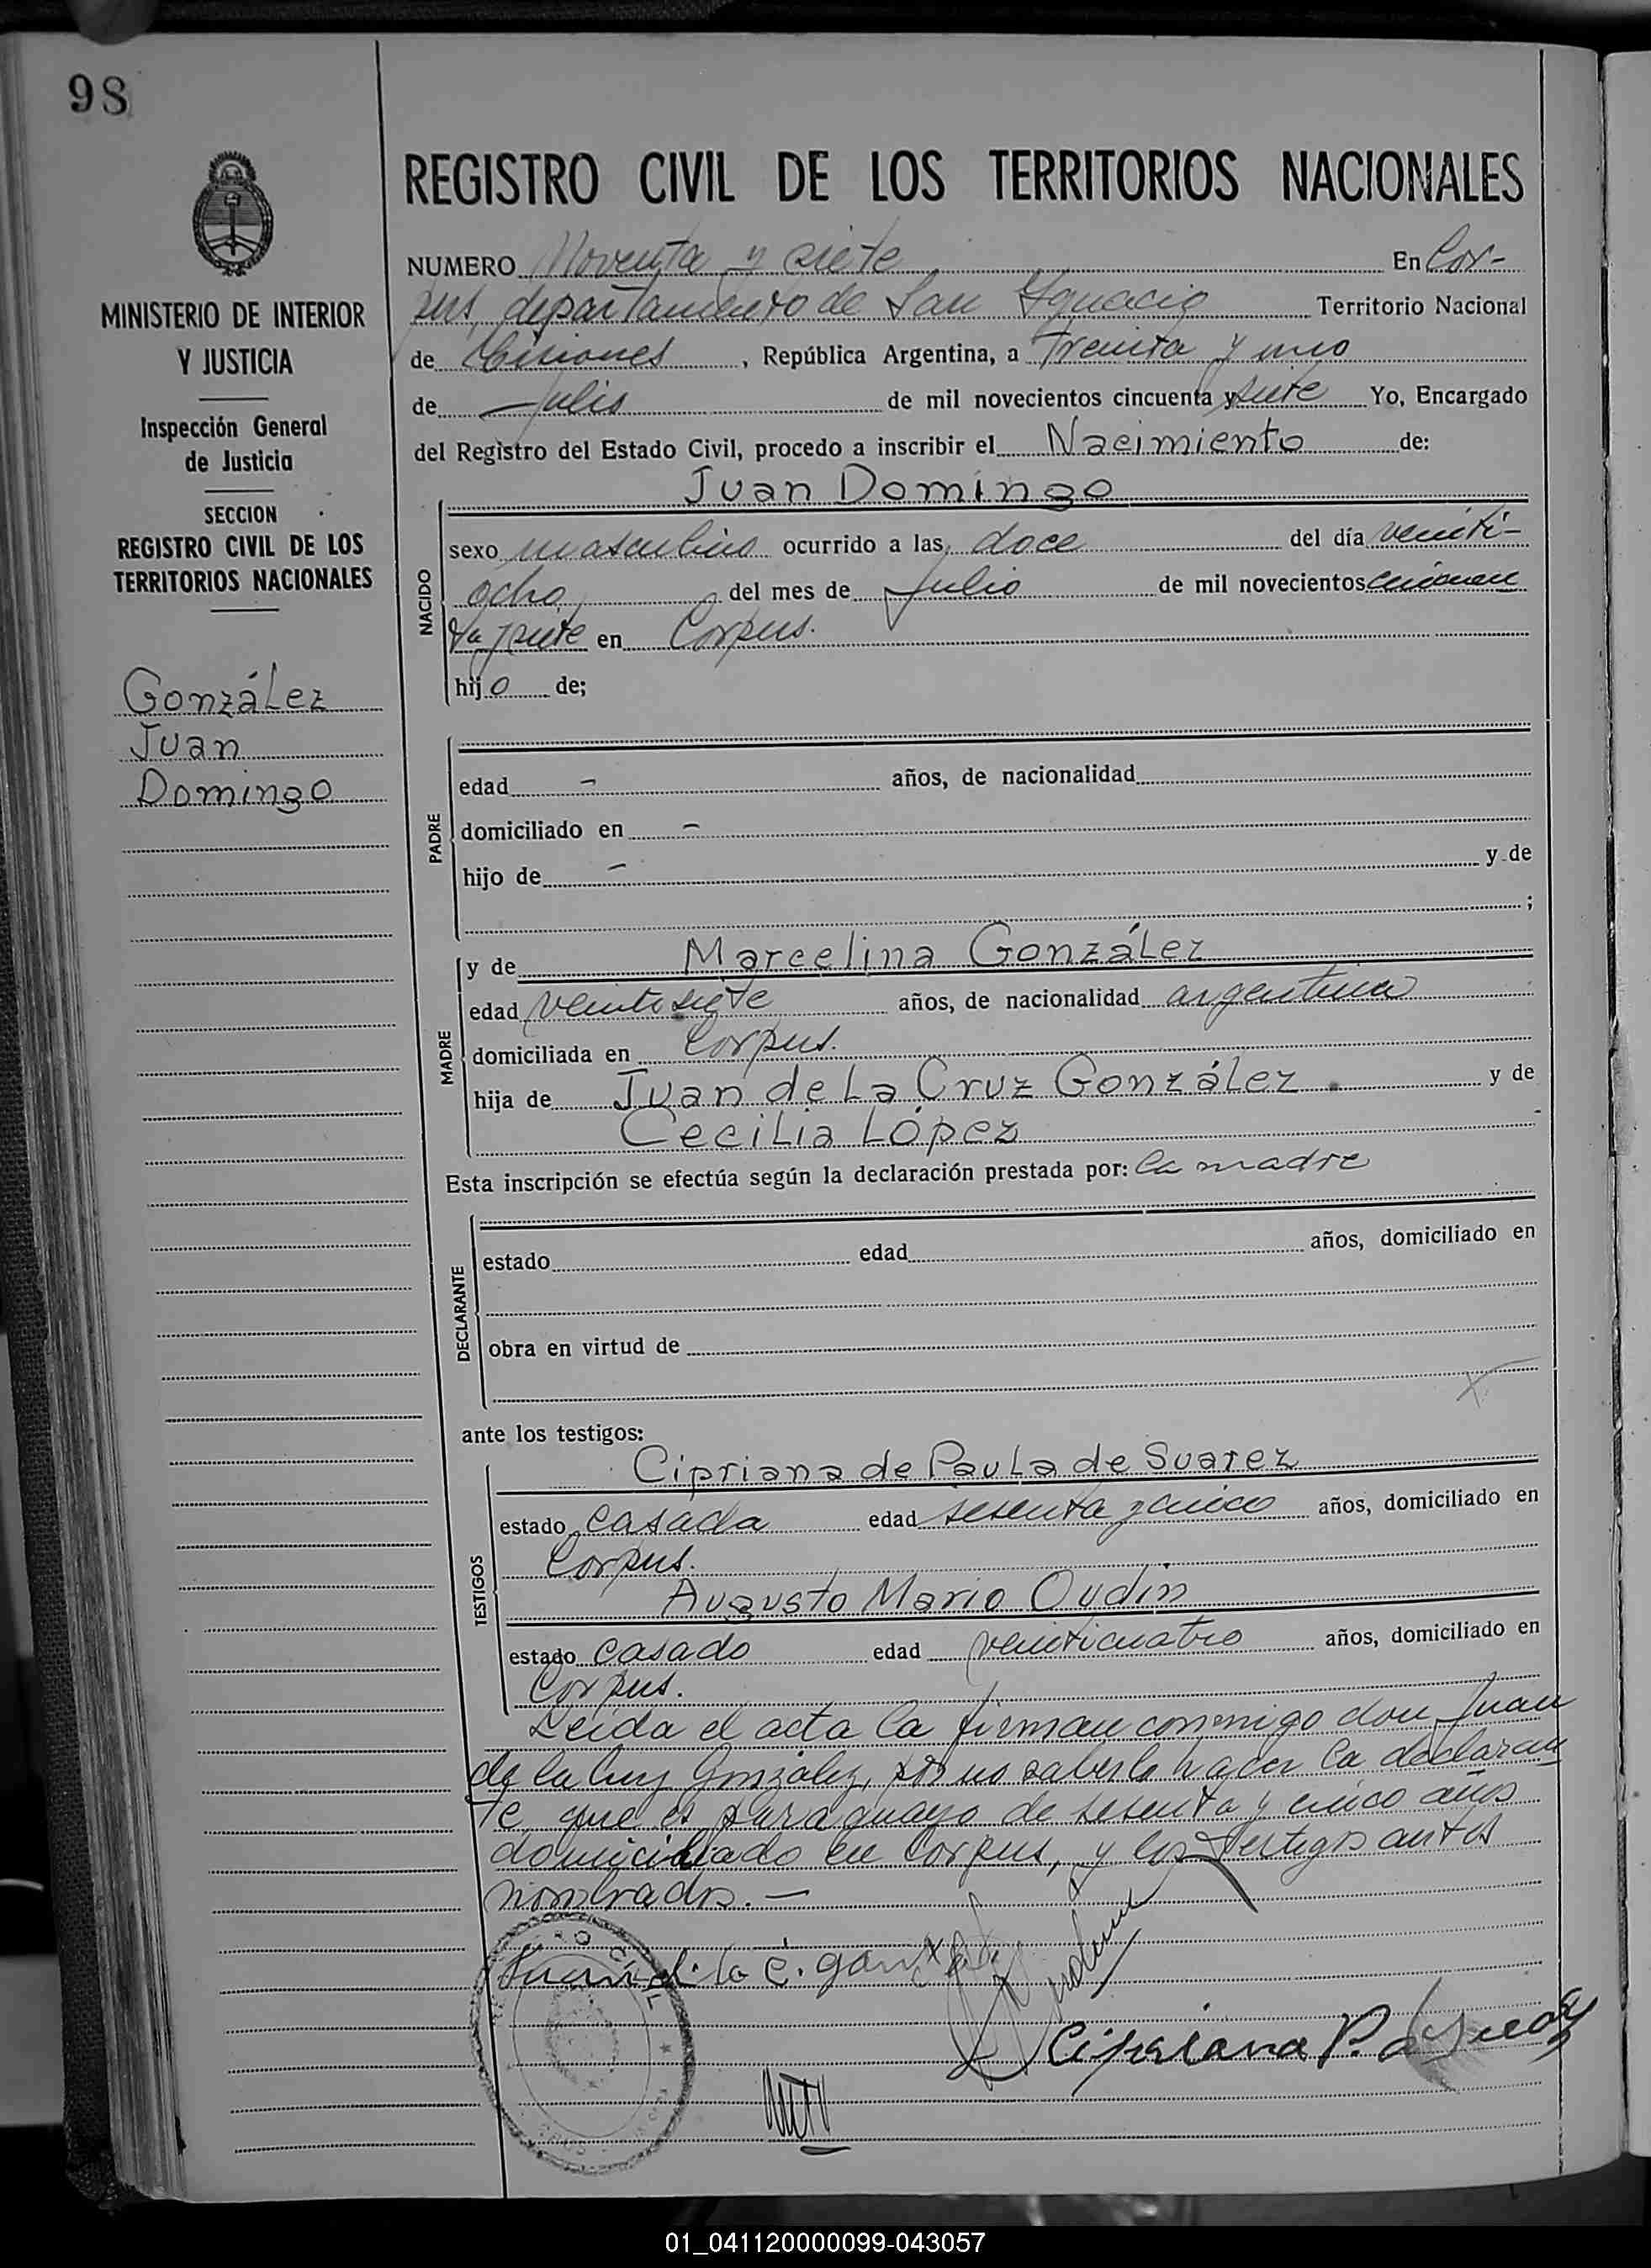 98
REGISTRO CIVIL DE LOS TERRITORIOS NACIONALES
MINISTERIO DE INTERIOR
Y JUSTICIA
Inspección General
de Justicia
SECCION
REGISTRO CIVIL DE LOS
TERRITORIOS NACIONALES
González
Juan
Domingo
NUMERO Noventa y siete En Cor-
pus, departamento de San Ygnacio Territorio Nacional
de Misiones, República Argentina, a Treinta y uno
de Julio de mil novecientos cincuenta y siete Yo, Encargado
del Registro del Estado Civil, procedo a inscribir el Nacimiento de:
Juan Domingo
NACIDO
sexo masculino ocurrido a las doce del día veinti-
ocho del mes de Julio de mil novecientos cincuen
ta y siete en Corpus.
hijo de;
PADRE
edad - años, de nacionalidad
domiciliado en -
hijo de - y de
;
MADRE
y de Marcelina González
edad veintisiete años, de nacionalidad argentina
domiciliada en Corpus.
hija de Juan de La Cruz González. y de
Cecilia López
Esta inscripción se efectúa según la declaración prestada por: la madre
DECLARANTE
estado edad años, domiciliado en
obra en virtud de
ante los testigos:
TESTIGOS
Cipriana de Paula de Suarez
estado casada edad sesenta y cinco años, domiciliado en
Corpus.
Augusto Mario Oudin
estado casado edad veinticuatro años, domiciliado en
Corpus.
Leída el acta la firman conmigo don Juan
de la Cruz González, por no saberlo hacer la declaran
te, que es paraguayo de sesenta y cinco años
domiciliado en Corpus, y los testigos antes
nombrados. —
Juan d. la C. gonz
Cipriana P. d Suarez
01_041120000099-043057